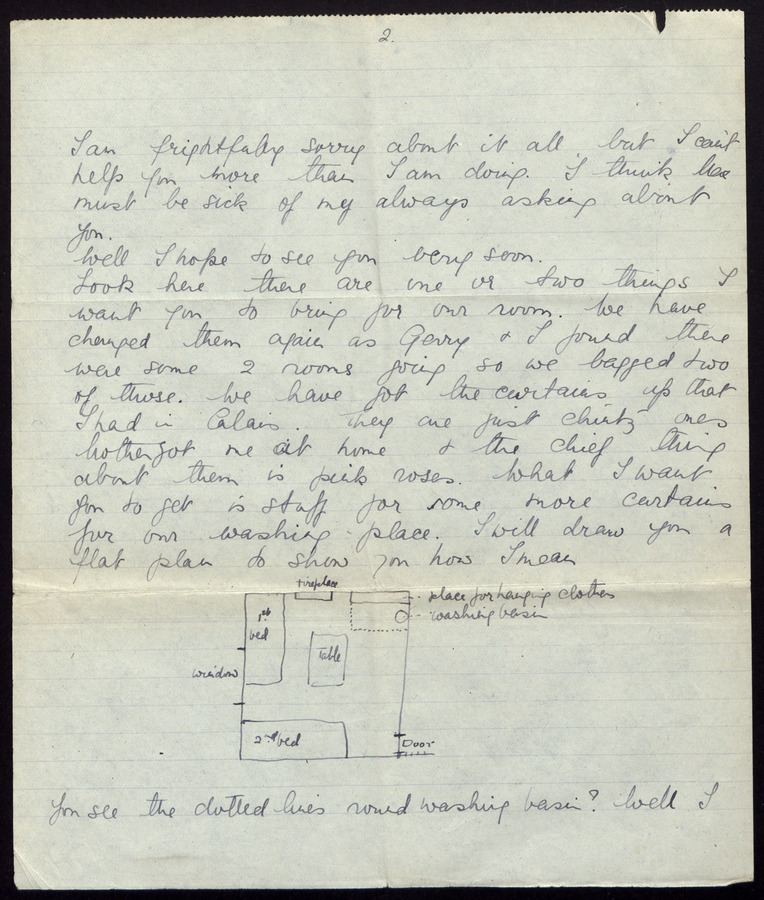 2.
I am frightfully sorry about it all but I can't
help you more than I am doing. I think
must be sick of my always asking about
you.
Well I hope to see you very soon.
Look here there are one or two things I
want you to bring for our room. We have
changed them again as Gerry & I found there
were some 2 rooms going so we bagged two
of those. We have got the curtains up that
I had in Calais. They are just chintz ones
Mother got me at home & the chief thing
about them is pink roses. What I want
you to get is stuff for some more curtains
for our washing-place. I will draw you a
flat plan to show you how I mean
fireplace
place for hanging clothes
washing basin
1st
bed
Table
window
2nd bed
Door
You see the dotted lines round washing basin? Well I